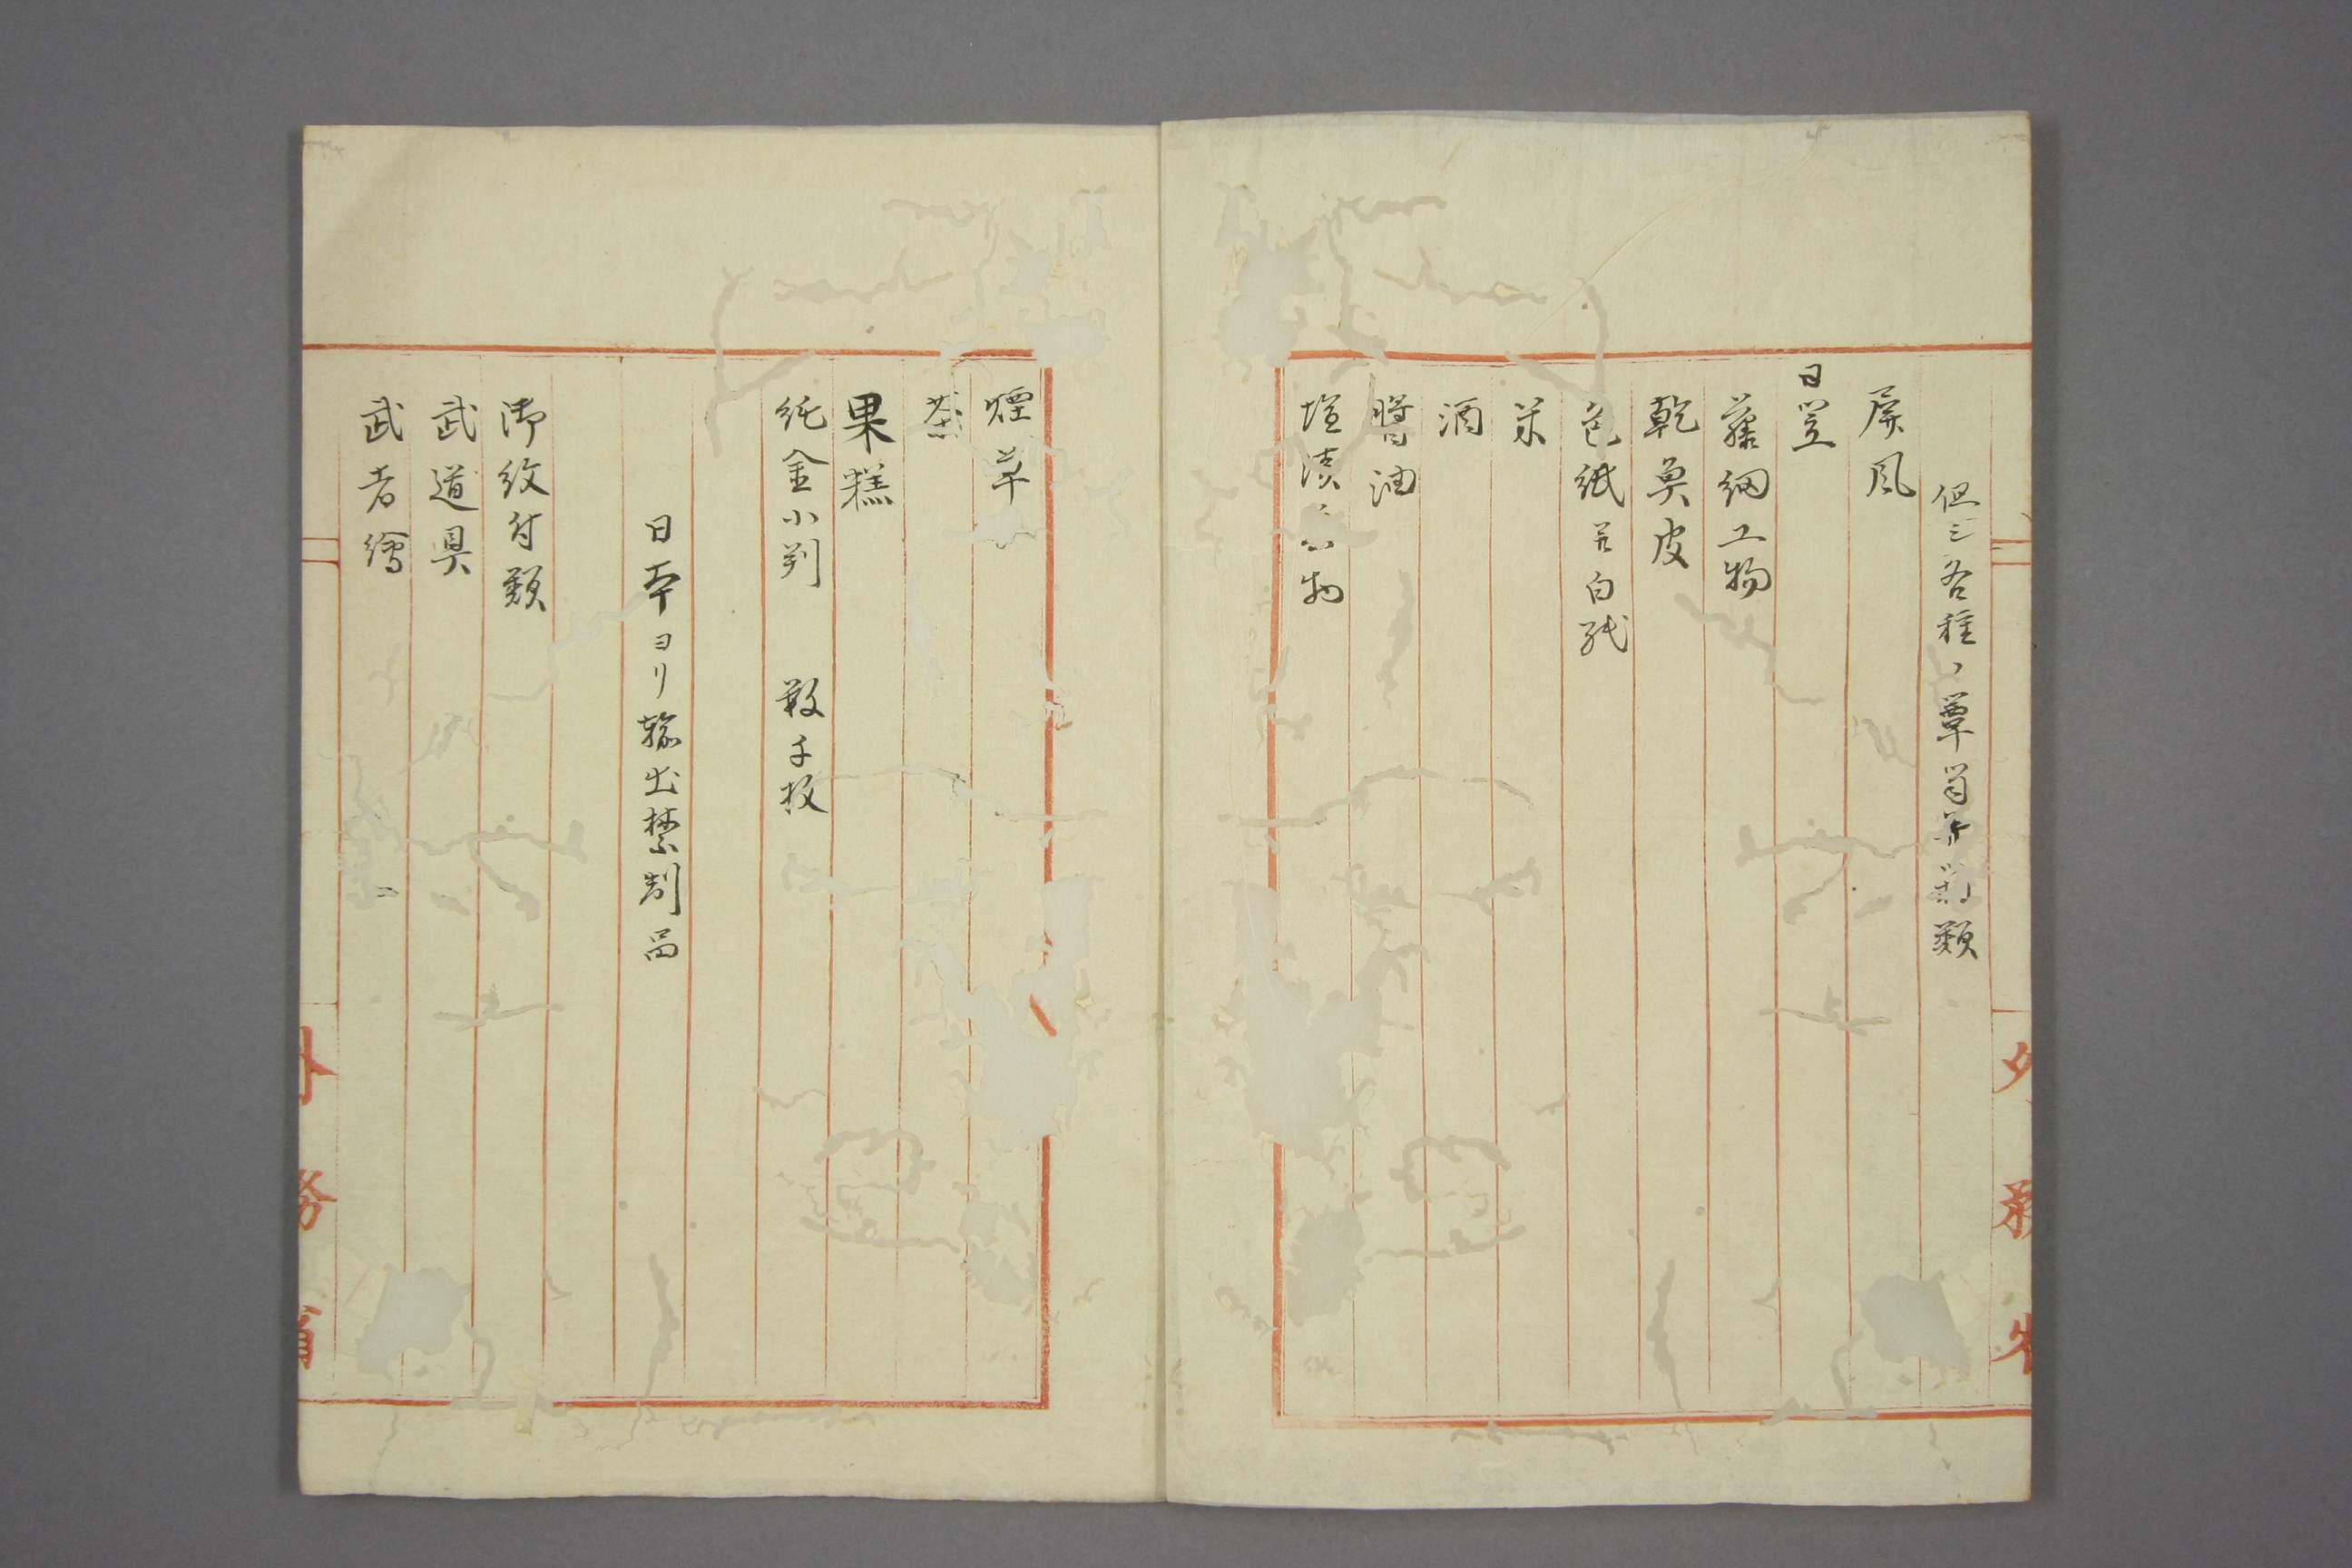 但シ各種ハ蕈筍類
屏風
日笠
藤細工物
乾魚皮
色紙並白紙
米
酒
醤油
塩漬ノ物
煙草
茶
果糕
純金小判　数千枚
日本ヨリ輸出禁制品
御紋付類
武道具
武者繪
外務省
外務省